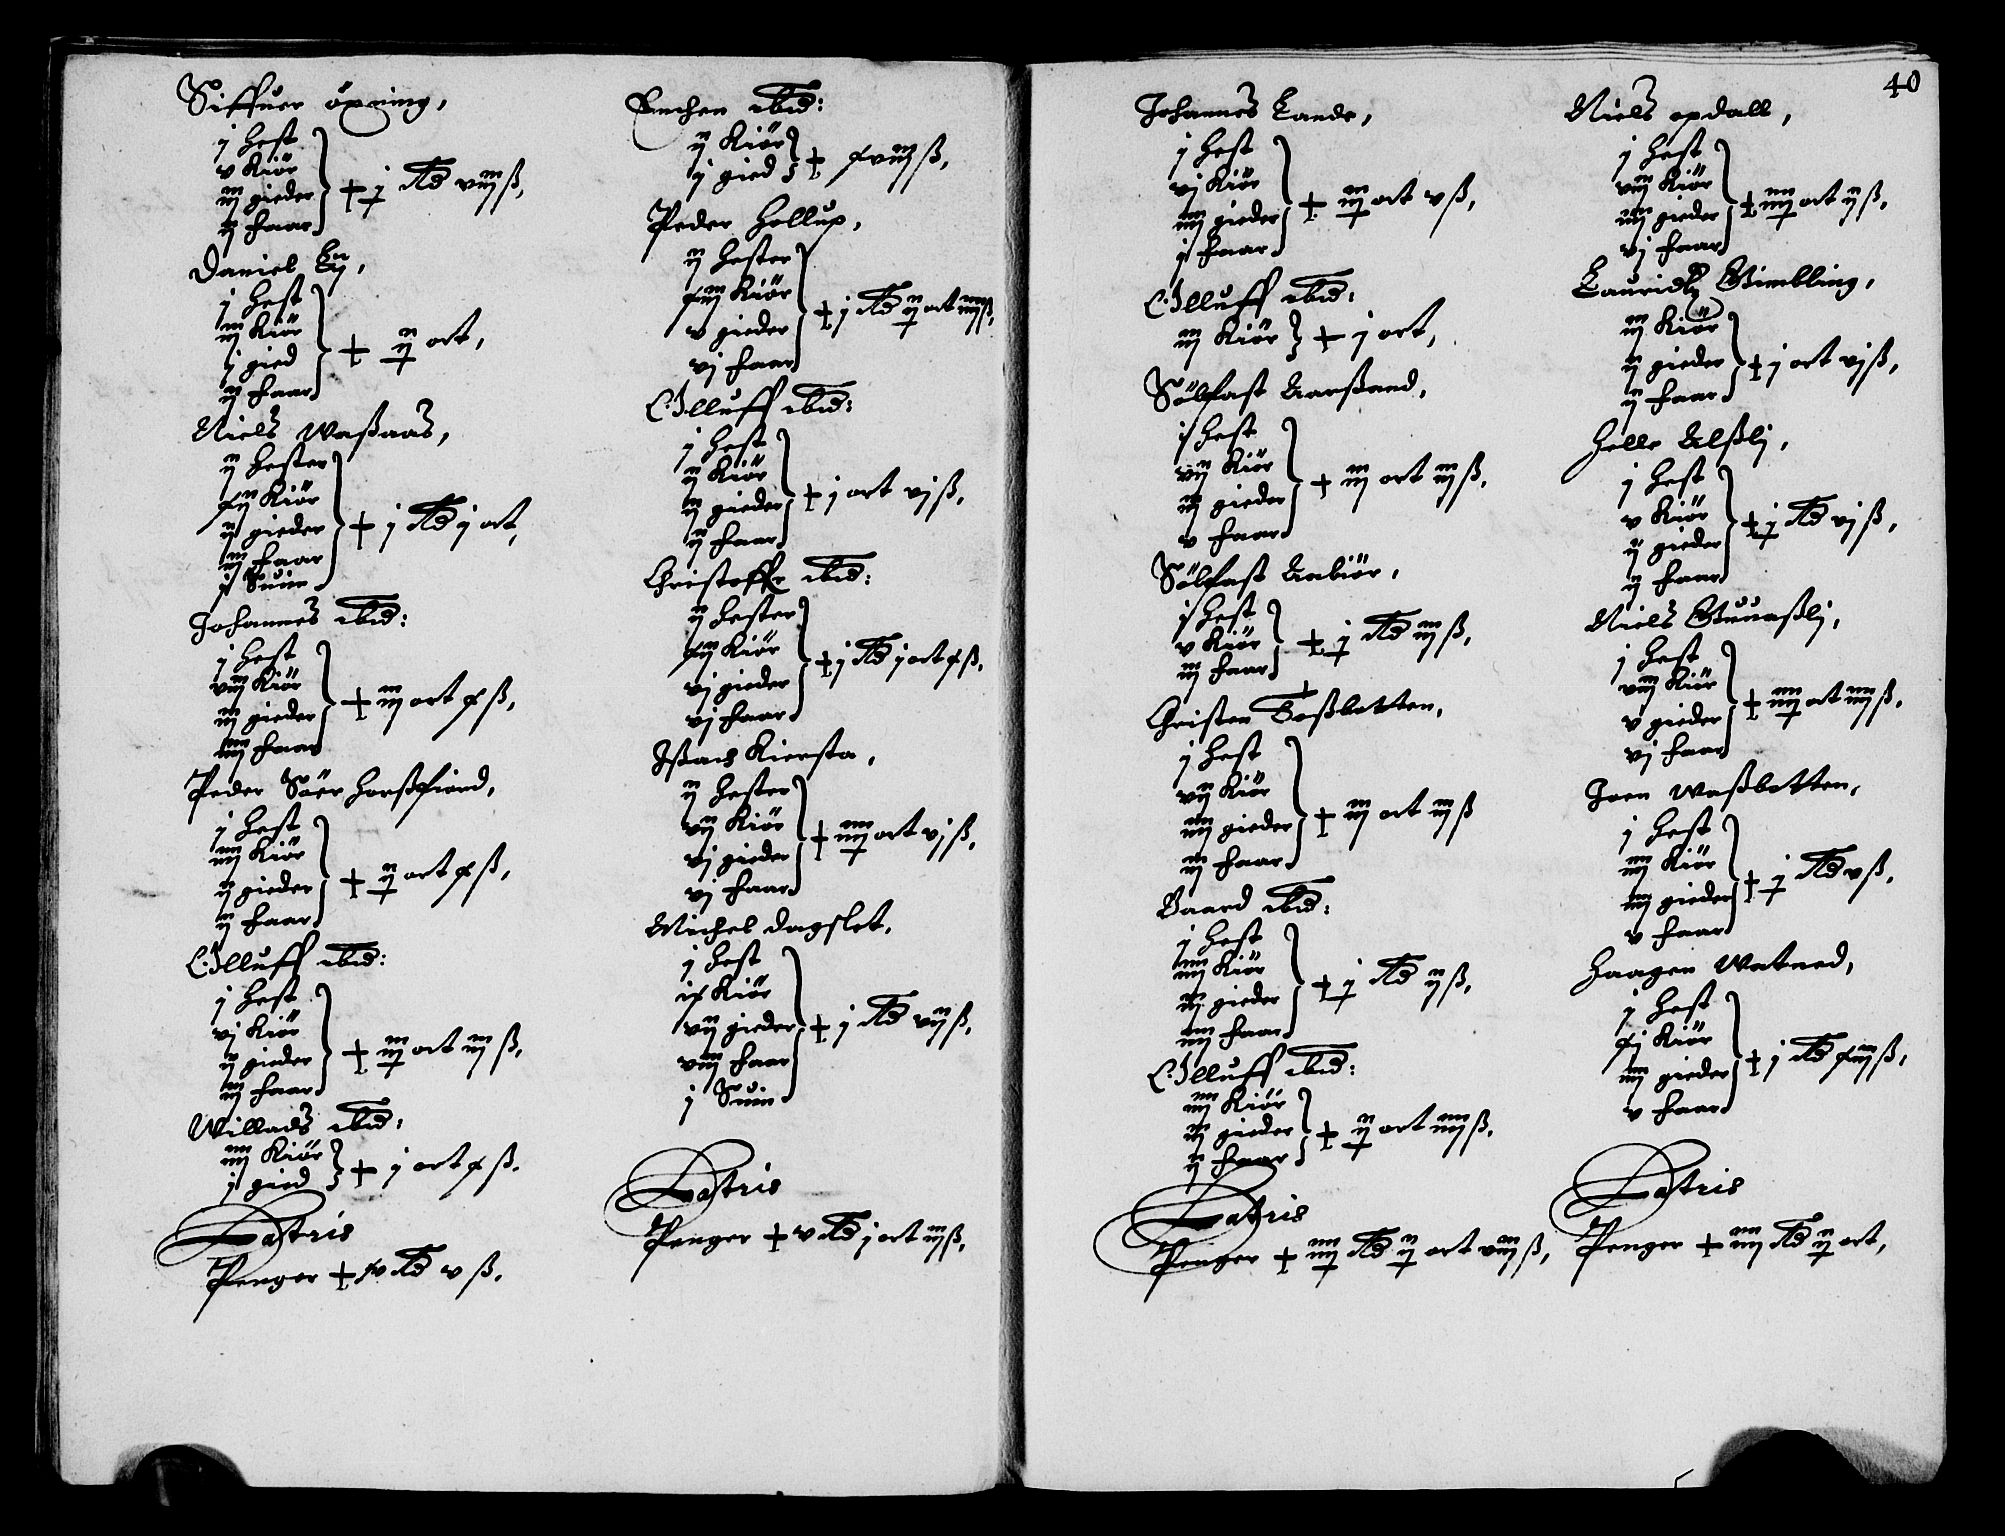 Siffuer öpning,
j hest
v Kiör
iij gieder
ij faar
+ j Rd viij ß,
Daniel Ly,
j hest
iij Kiör
j gied
ij faar
+ ij ort,
Niels Waßaas,
ij hester
xij Kiör
ij gieder
iij faar
j Suin
+ j Rd j ort,
Johannes ibid:
j hest
viij Kiör
iij gieder
iiij faar
+ iij ort x ß,
Peder Säer horßfiord,
j hest
iiij Kiör
ij gieder
ij faar
+ ij ort x ß,
E: Olluff ibid:
j hest
vj Kiör
ij gieder
iij faar
+ iij ort iij ß,
Willads ibid:
iiij Kiör
j gied
+ j ort x ß.
Latris
Penger + iv Rd v ß.
Enchen ibid:
ij Kiör
j gied
+ xviij ß,
Peder Hollup,
ij hester
xiij Kiör
v gieder
vj faar
+ j Rd ij ort iiij ß,
E: Olluff ibid:
j hest
ij Kiör
ij gieder
ij faar
+ j ort vj ß,
Christoffr ibid:
ij hester
xij Kiör
vj gieder
vj faar
+ j Rd j ort x ß,
Ißach Kiersta,
ij hester
vij Kiör
vj gieder
vj faar
+ iiij ort vj ß,
Michel dagslet,
j hest
ix Kiör
vij gieder
viij faar
j Suin
+ j Rd vij ß,
Latris
Penger + v Rd j ort iij ß,
40
Johannes Lande,
j hest
vj Kiör
iiij gieder
j faar
+ iij ort v ß,
E: Olluff ibid:
iij Kiör
+ j ort,
Sölfast Aarßand,
j hest
vij Kiör
iij gieder
v faar
+ iij ort iij ß,
Sölfast Aabiör,
j hest
v Kiör
iij faar
+ j Rd iij ß,
Christen Toßbotten,
j hest
vij Kiör
iiij gieder
iij faar
+ iij ort iij ß
Baard ibid:
j hest
iiij Kiör
iij gieder
iiij faar
+ j Rd ij ß,
E: Olluff ibid:
iiij Kiör
ij gieder
ij faar
+ ij ort iiij ß,
Latris
Penger + iiij Rd ij ort viij ß,
Niels opdall,
j hest
viij Kiör
iiij gieder
vj faar
+ iiij ort ij ß,
Lauridtz Vimbling,
iij Kiör
ij gieder
ij faar
+ j ort vj ß,
Helle Alßlj,
j hest
v Kiör
ij gieder
ij faar
+ j Rd vj ß,
Niels Guuaßlj,
j hest
viij Kiör
v gieder
vj faar
+ iiij ort iiij ß,
Joen Waßbotten,
j hest
iiij Kiör
iiij gieder
v faar
+ j Rd v ß.
Haagen Watned,
j hest
xj Kiör
iiij gieder
v faar
+ j Rd xiij ß,
Latris
Penger + iiij Rd ij ort,